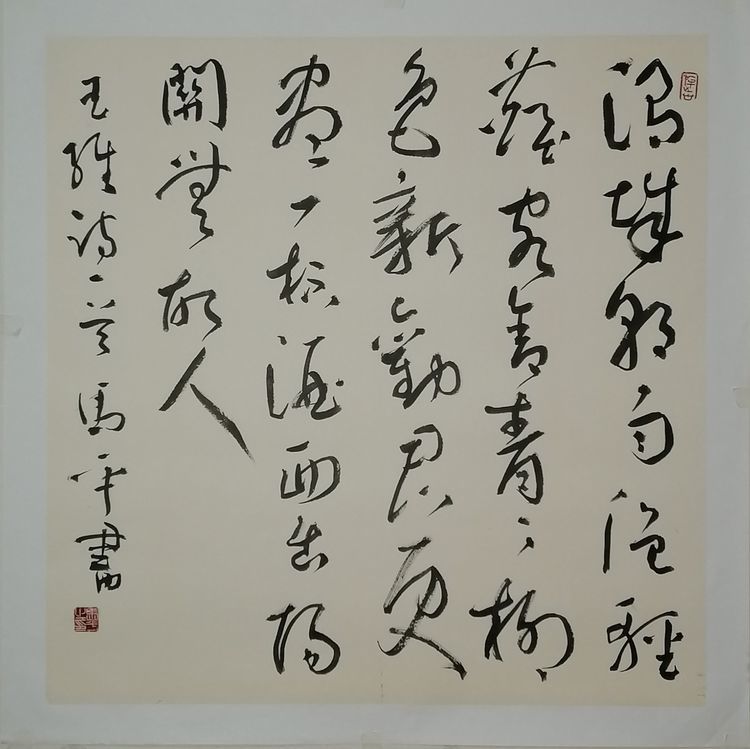 渭城朝雨浥輕
塵客舍青々柳
色新勸君更
盡一杯酒西出陽
關無故人
王維詩一首馬平書